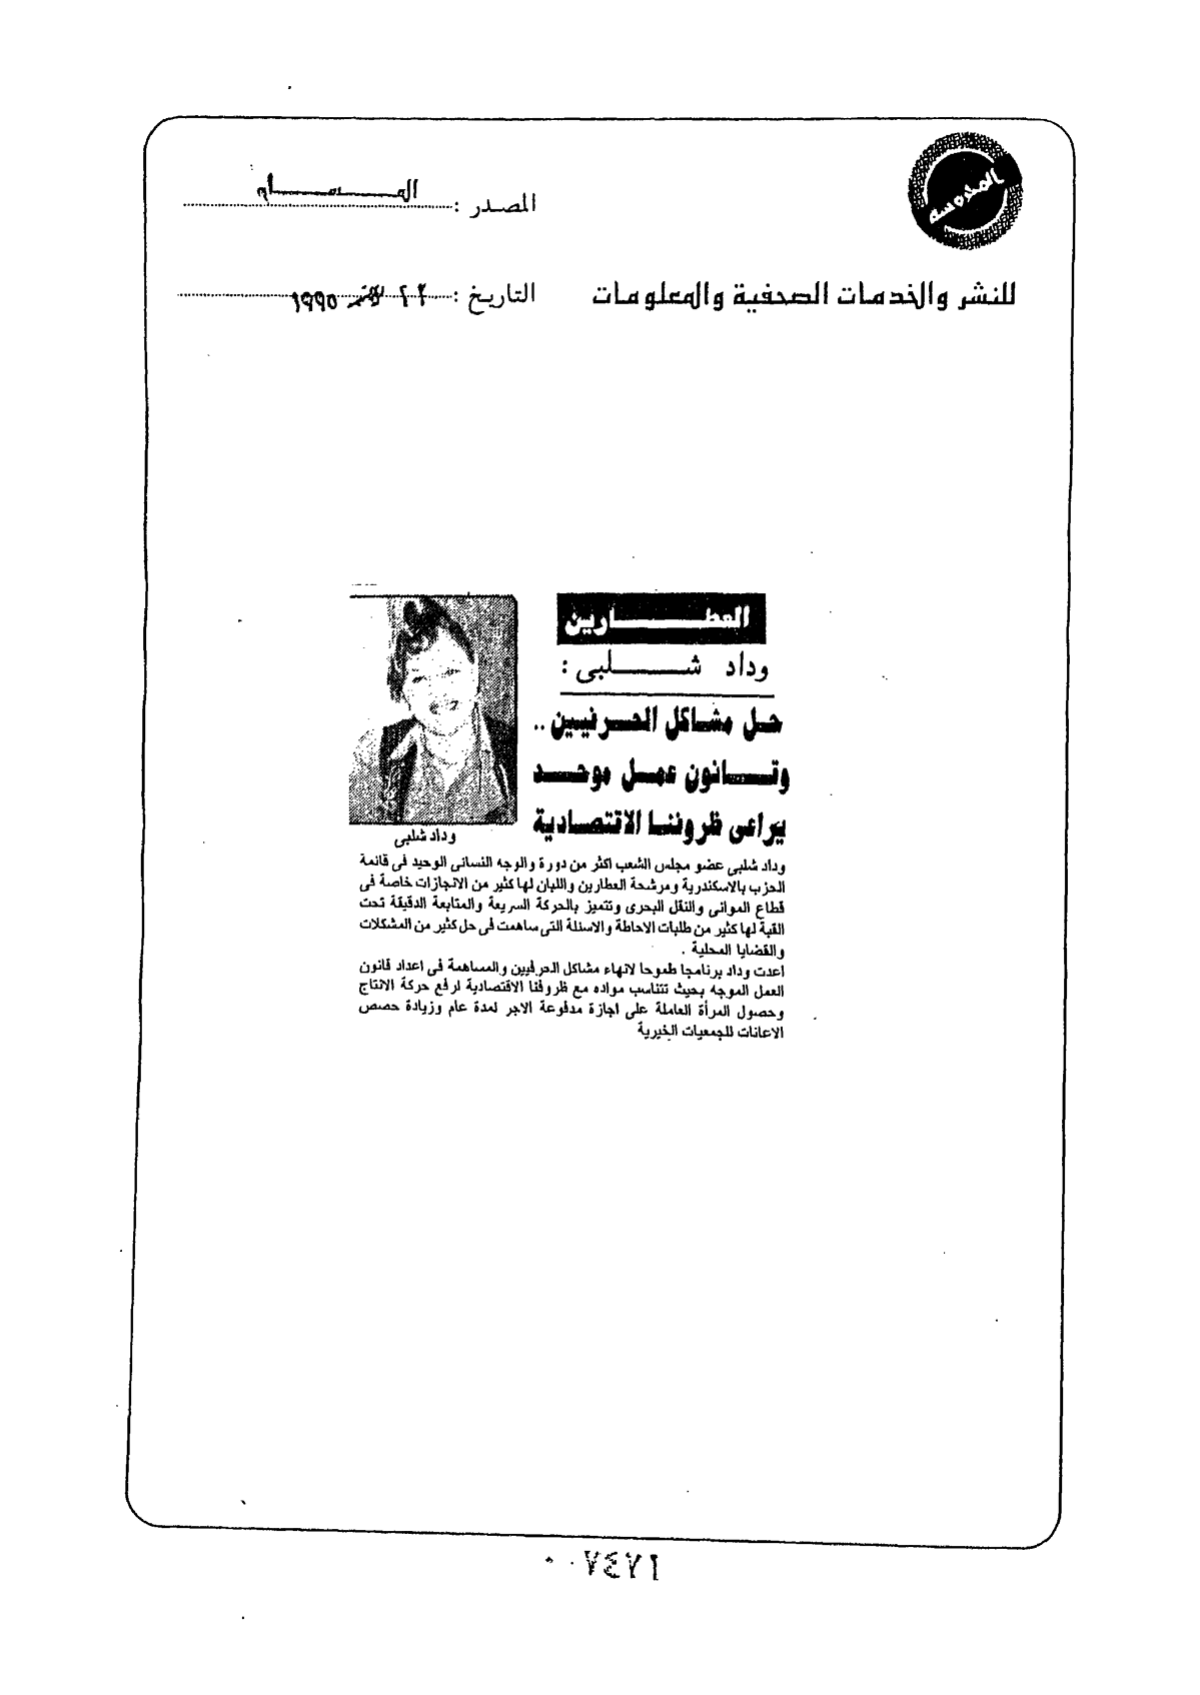 المحروسة
المصدر : المساء
للنشر والخدمات الصحفية والمعلومات
التاريخ : ٢٢ نوفمبر ١٩٩٥
العطارين
وداد شلبى :
حل مشاكل الحرفيين ..
وقانون عمل موحد
يراعى ظروفنا الاقتصادية
وداد شلبى
وداد شلبى عضو مجلس الشعب اكثر من دورة والوجه النسائى الوحيد فى قائمة
الحزب بالاسكندرية ومرشحة العطارين واللبان لها كثير من الانجازات خاصة فى
قطاع الموانى والنقل البحرى وتتميز بالحركة السريعة والمتابعة الدقيقة تحت
القبة لها كثير من طلبات الاحاطة والاسئلة التى ساهمت فى حل كثير من المشكلات
والقضايا المحلية .
اعدت وداد برنامجا طموحا لانهاء مشاكل الحرفيين والمساهمة فى اعداد قانون
العمل الموجه بحيث تتناسب مواده مع ظروفنا الاقتصادية لرفع حركة الانتاج
وحصول المرأة العاملة على اجازة مدفوعة الاجر لمدة عام وزيادة حصص
الاعانات للجمعيات الخيرية